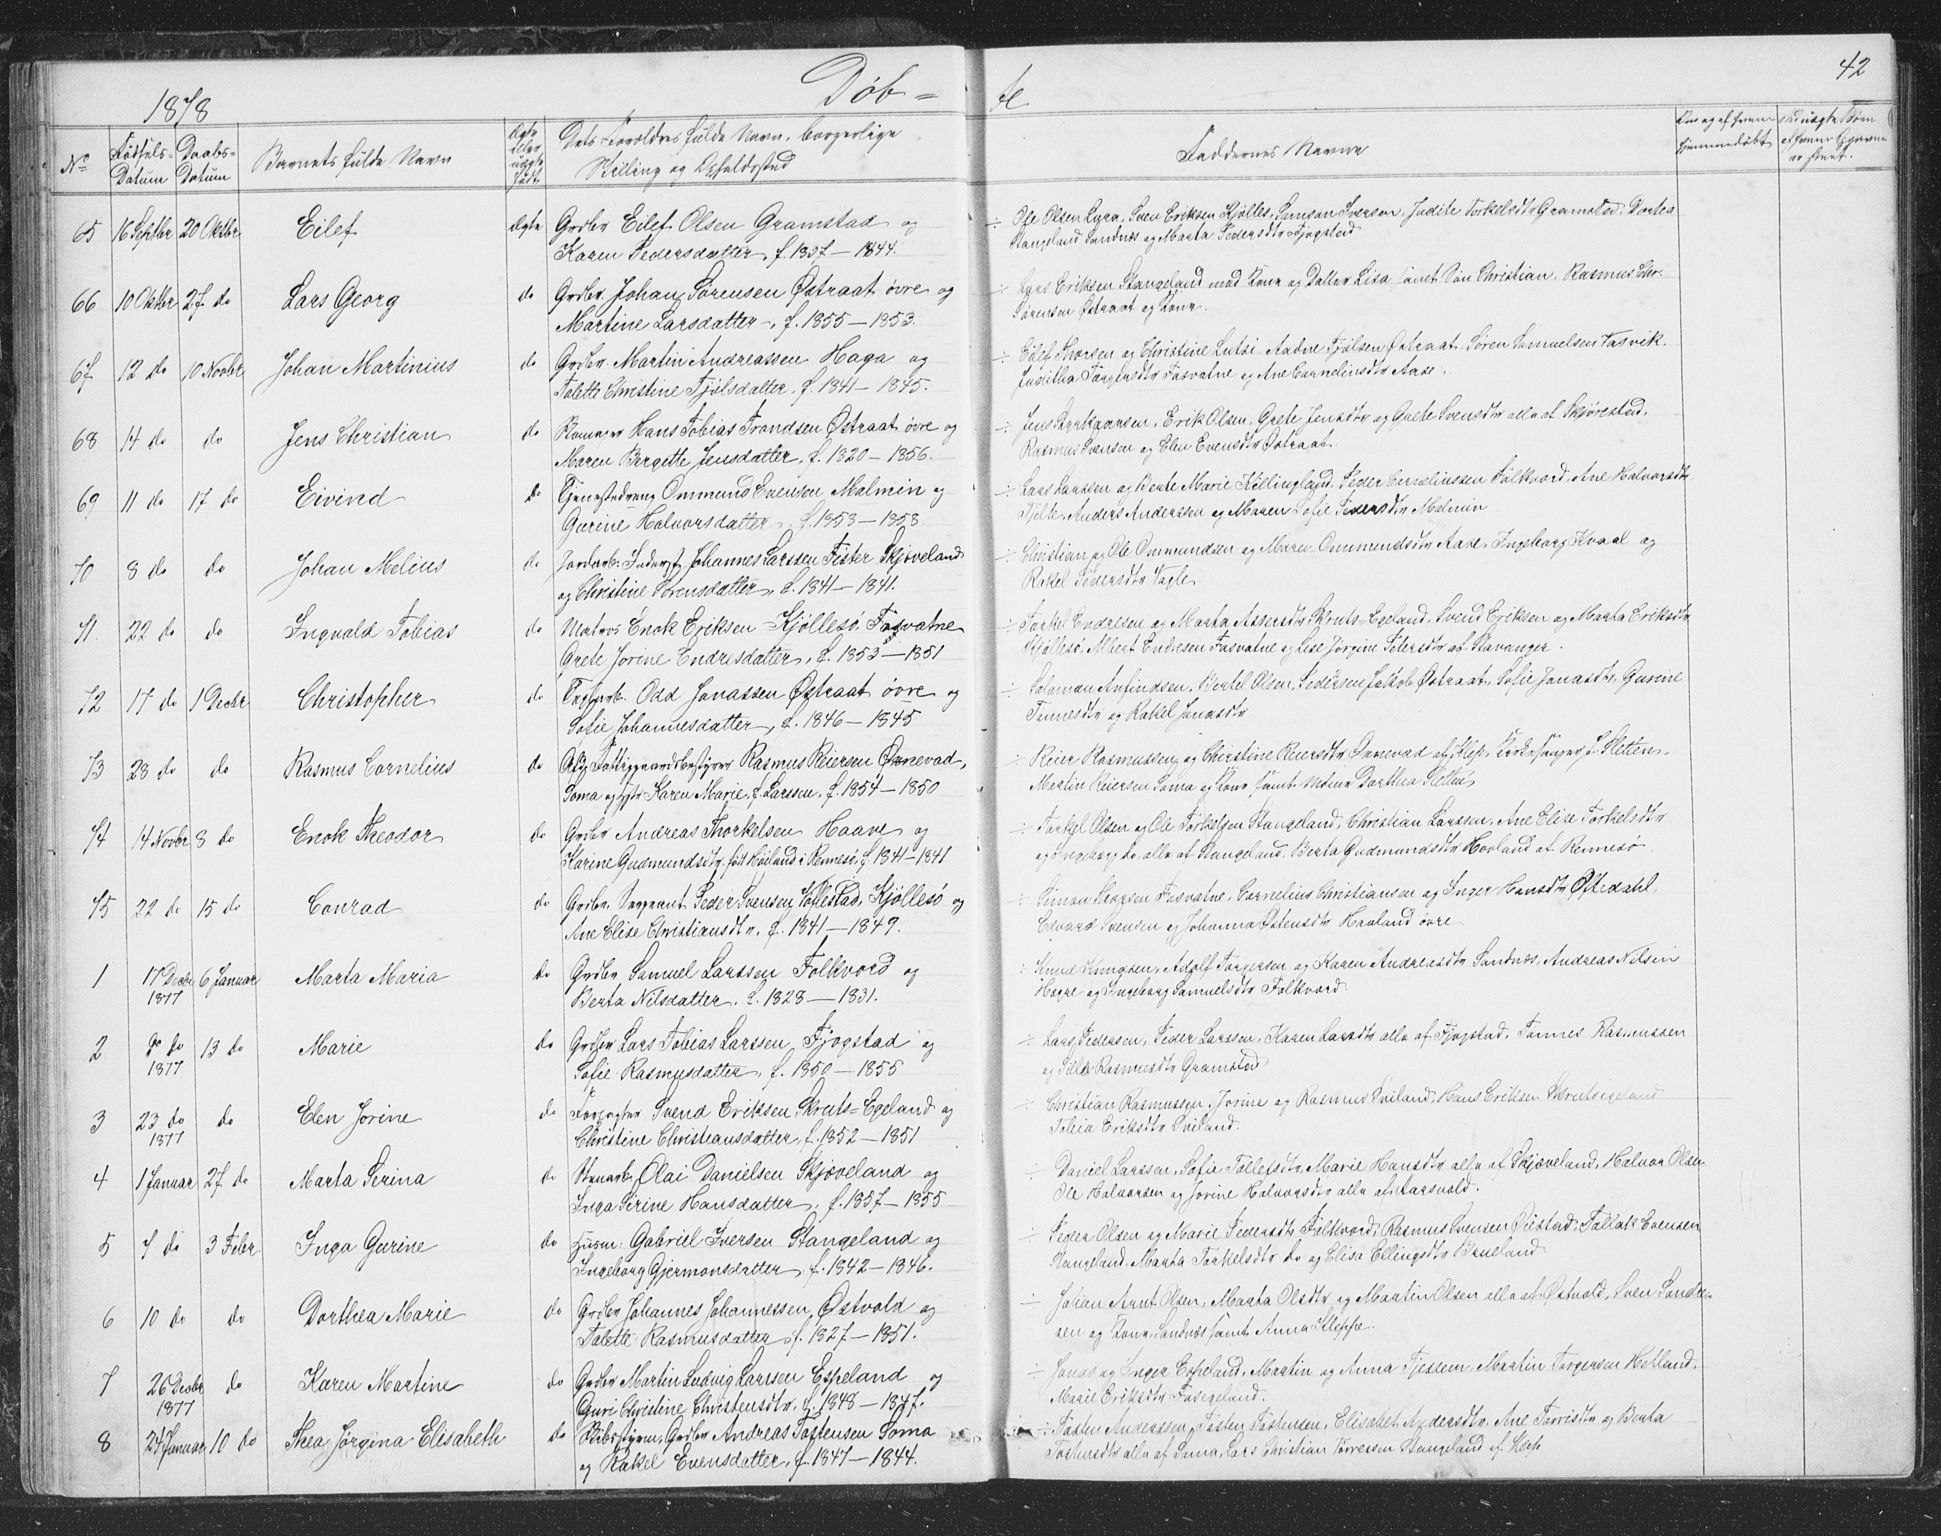 1878
Døb = te
42
No
Fødsels-Datum
Daabs-Datum
Barnets fulde Navn
Ægte eller uægte født
Dets Forældres fulde Navn, borgerlige Stilling og Opholdssted
Faddernes Navne
65 16 Septbr 20 Oktbr Eilef Ægte Grdbr Eilef Olsen Gramstad og
Karen Pedersdatter, f. 1837 – 1844.
÷ Ole Olsen Lura, Sven Eriksen Kjølles, Samson Iversen, Judite Torkelsdtr Gramstad, Dortea
Stangeland Sandnæs og Marta Pedersdtr Fjogstad
66 10 Oktbr 27 do Lars Georg do Grdbr Johan Sørensen Østraat øvre og
Martine Larsdatter, f. 1855 – 1853.
÷ Lars Eriksen Stangeland med Kone og Datter Lisa, samt Søn Christian, Rasmus Chr.
Sørensen Østraat og Kone.
67 12 do 10 Novbr Johan Martinius do Grdbr Martin Andreassen Haga og
Tolette Christine Tjølsdatter, f. 1841 – 1845.
÷ Eilef Thorsen og Christine Lutsi, Aadne Tjølsen Østraat, Søren Samuelsen Vasvik
Torgersdtr Fosvatne og Ane Cornelinsdtr Aase.
68 14 do do Jens Christian do Hans Tobias Trondsen Østraat øvre og
Maren Bergitte Jensdatter, f. 1820 – 1856.
÷ Jens, Erik Olsen, Grete Jensdtr og Grete Svensdtr alle af Skjørestad,
Rasmus Svensen og Elen Evensdtr Østraat.
69 11 do 17 do Eivind do Tjenestedreng Ommund Evensen Malmin og
Gurine Halvorsdatter, f. 1853 – 1853
÷ Lars Larssen og Berte Marie Kyllingland, Peder Cornelinssen Folkvord, Ane Halvorsdtr
Tjelte, Anders Anderssen og Maren Sofie Pedersdtr Malmin.
70 8 do do Johan Melius do Jordarb. Inderst Johannes Larssen Fister Skjæveland
og Christine Sørensdatter, f. 1841 – 1841.
÷ Christian og Ole Ommundsen og Maren Ommundsdtr Aase, Ingeborg Kvaal og
Rakel Pedersdtr Vagle
71 22 do do Ingvald Tobias do Matros Enok Eriksen Kjøllesø, Fosvatne
Grete Jorine Endresdatter, f. 1853 – 1851
÷ Torkel Endresen og Marta Assersdtr Skruts-Egeland, Svend Eriksen og Marta Eriksdtr
Kjøllesø, Albert Endresen Fosvatne og Lise Jørgine Petersdtr af Stavanger.
72 17 do 1 Decbr Christopher do Odd Jonassen Østraat øvre og
Sofie Johannesdatter, f. 1846 – 1845
÷ Soloman Anfindsen, Bertel Olsen, Pedersen Jakob Østraat, Sofie Jonasdtr, Gurine
Tønnesdtr og Rakel Jonasdtr
73 28 do do Rasmus Cornelius do Fattiggaardsbestyrer Rasmus Reiersen Ørnevad,
Soma og Karen Marie, f. Larssen, f. 1854 – 1850
÷ Reier Rasmussen og Christine Reiersdtr Ørnevad af Klep, Kirkesanger S. Sletten,
Martin Reiersen Soma og Kone samt Dorthea Sletten
74 14 Novbr 8 do Enok Theodor do Grdbr Andreas Thorkelsen Haave og
Karine Gudmundsdtr, født Høiland i Rennesø, f. 1841 – 1841
÷ Torkel Olsen og Ole Torkelsen Stangeland, Christian Larssen, Ane Elise Torkelsdtr
og Ingeborg do alle af Stangeland, Berta Gudmundsdtr Hovland af Rennesø.
75 22 do 15 do Conrad do Grdbr Sergeant Peder Svensen Kjøllesø og
Ane Elise Christiansdtr, f. 1841 – 1849.
÷ Simon Fosvatne, Cornelius Christiansen og Inger Hansdtr Øftedahl,
Edvard Svensen og Johanna Østensdtr Haaland øvre
1 17 Decbr 1877 6 Januar Marta Maria do Grdbr Samuel Larssen Folkvord og
Berta Nilsdatter, f. 1828 – 1831.
÷ Knud Knudsen, Adolf Torgersen og Karen Andreasdtr Sandnæs, Andreas Nilsen
og Ingeborg Samuelsdtr Folkvord
2 do 1877 13 do Marie do Grdbr Lars Tobias Larssen Fjogstad og
Sofie Rasmusdatter, f. 1850 – 1855
÷ Lars Pedersen, Peder Larssen, Karen Larsdtr alle af Fjogstad, Tønnes Rasmussen
og Rasmusdtr Gramstad
3 23 do 1877 do Elen Jorine do Forpagter Svend Eriksen Skruts-Egeland og
Christine Christiansdatter, f. 1852 – 1851
÷ Christian Rasmussen, Jorine og Rasmus Sviland, Hans Eriksen Skrutsegeland
Eriksdtr Sviland.
4 1 Januar 27 do Marta Serina do Stenarb. Olai Danielsen Skjæveland og
Inga Serine Hansdatter, f. 1857 – 1855
÷ Daniel Larssen, Sofie Tollefsdtr, Marie Hansdtr alle af Skjæveland, Halvor Olsen
Ole Halvorsen og Jorine Halvorsdtr alle af Aarsvold.
5 7 do 3 Febr Inga Gurine do Husm. Gabriel Iversen Stangeland og
Ingeborg Gjermonsdatter, f. 1842 – 1846.
÷ Peder Olsen og Marie Pedersdtr Folkvord, Rasmus Svensen Øiestad, Tollak Evensen
Stangeland, Marta Torkelsdtr do og Elise Ellingsdtr Brueland
6 10 do do Dorthea Marie do Grdbr Johannes Johannessen Østvold og
Tolette Rasmusdatter, f. 1827 – 1851.
÷ Johan Arnt Olsen, Marta Olsdtr og Martin Olsen alle af Østvold, Sven Sander-
sen og Kone, Sandnæs samt Anna Kleppe.
7 26 Decbr 1877 do Karen Martine do Grdbr Martin Ludvig Larssen Espeland og
Guri Christine Christensdtr, f. 1848 – 1847.
÷ Jonas og Inger Espeland, Martin og Anna Tjessem, Martin Torgersen Hetland,
Marie Eriksdtr Foss-Egeland.
8 24 Januar 10 do Thea Jørgina Elisabeth do Skibstyrm., Grdbr Andreas Tostensen Soma
og Rakel Evensdatter, f. 1847 – 1844.
÷ Tosten Anderssen, Tosten Tostensen, Elisabet Andersdtr, Ane Torrisdtr og Berta
Tostensdtr alle af Soma, Lars Christian Torressen Stangeland af Klep